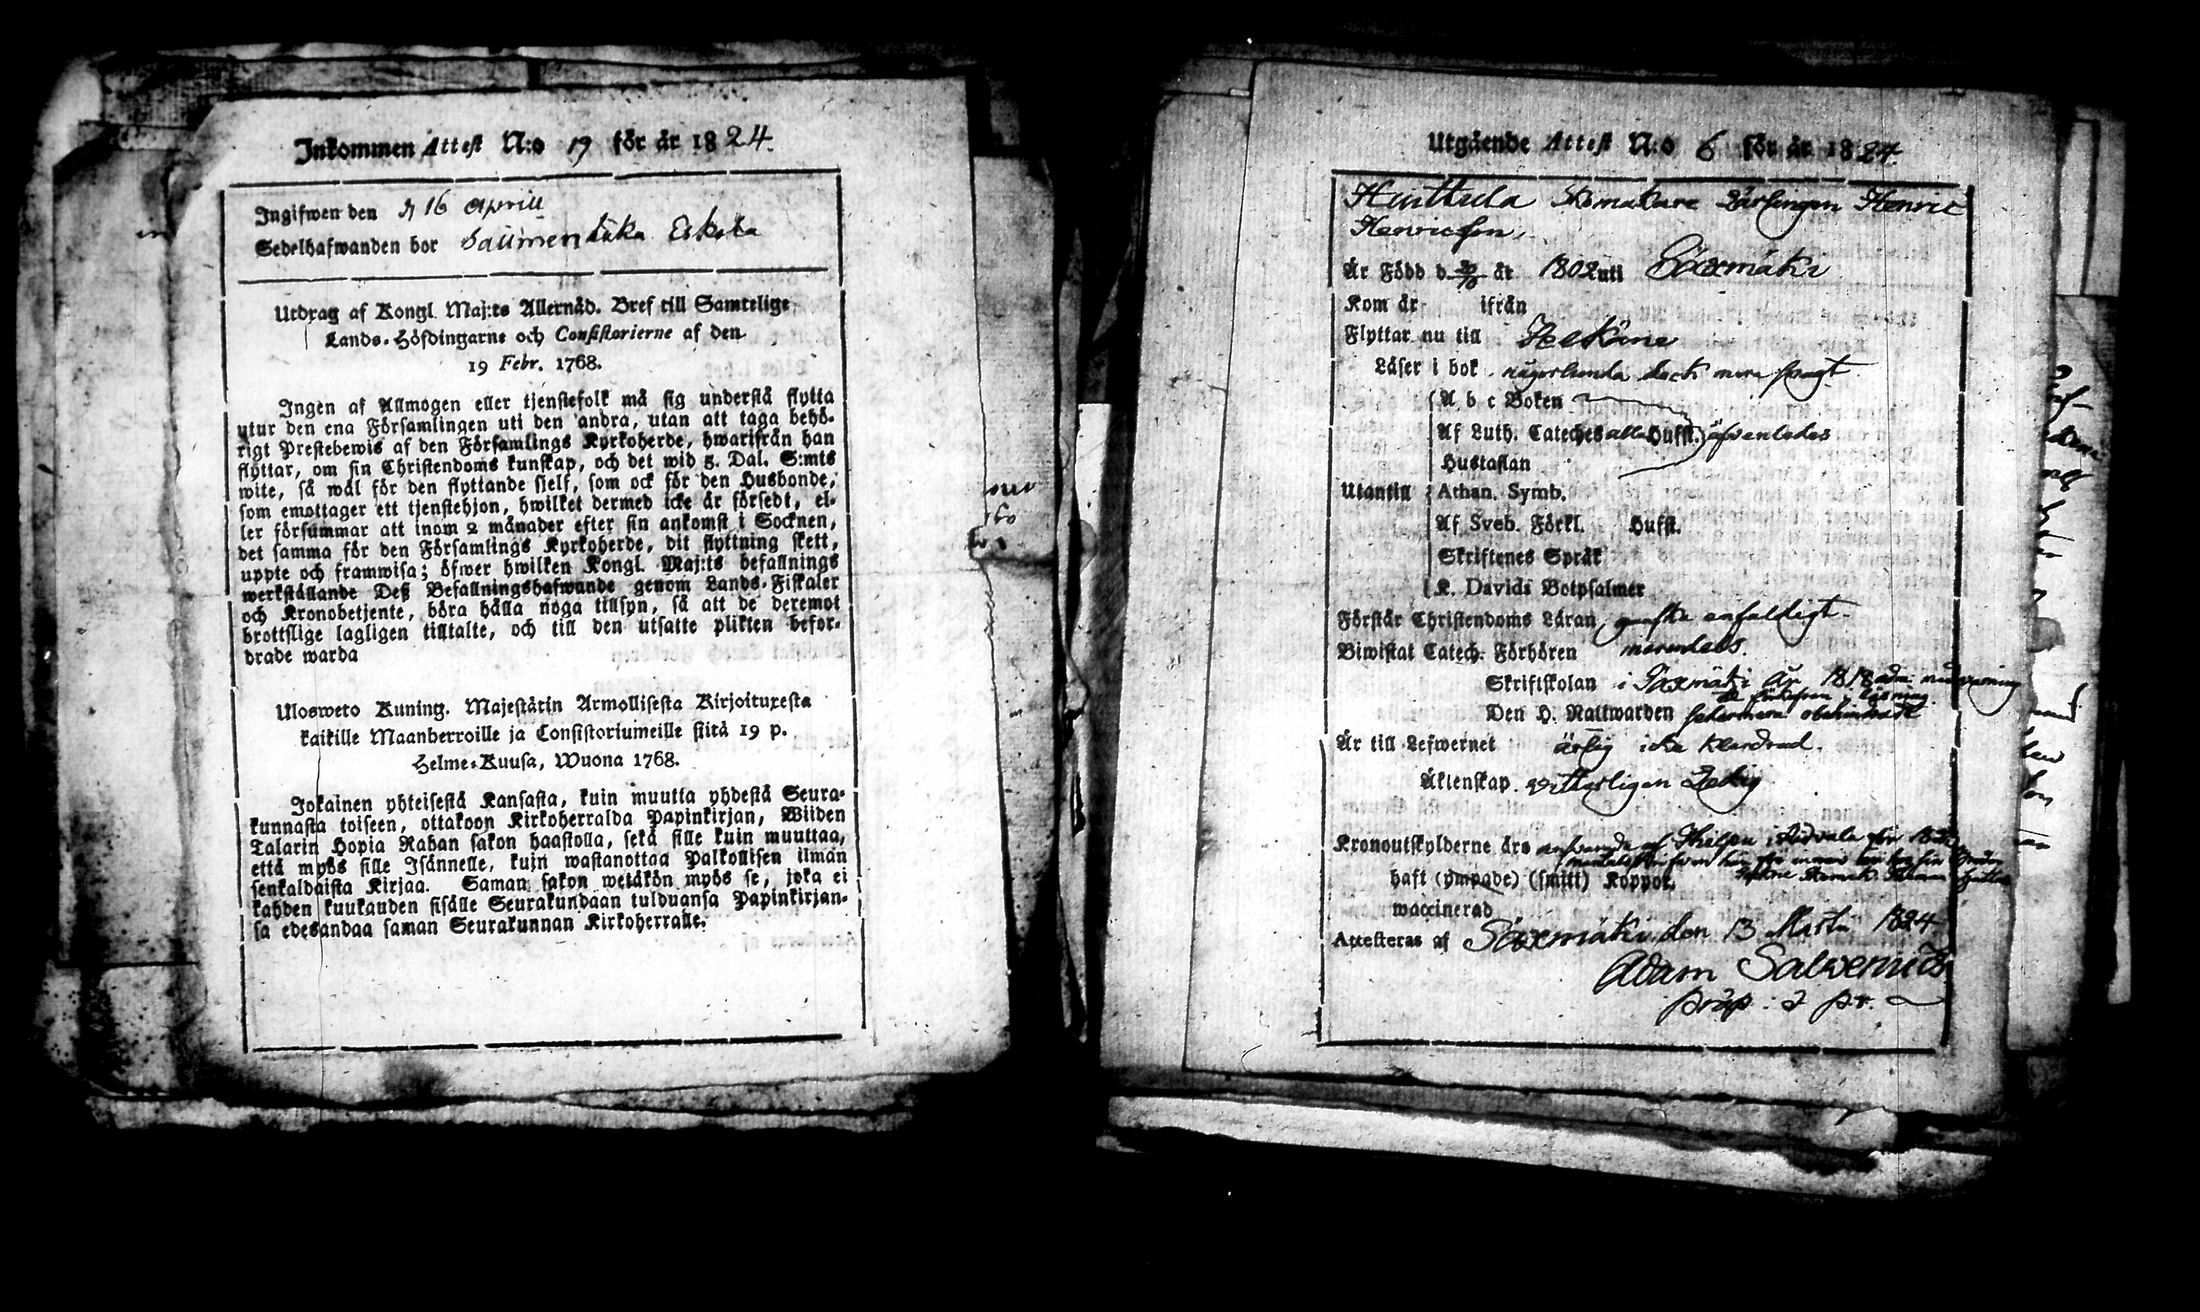 Inkommen Attest N:o 19 för år 1824.
Ingifwen den d 16 Aprill
Sedelhafwanden bor Saümen
Utdrag af Kongl. Maj:ts Allernåd. Bref till Samtelige
Lands-Höfdingarne och Consistorierne af den
19 Febr. 1768.
Ingen af Allmogen eller tjenstefolk må sig understå flytta
utur den ena Församlingen uti den andra, utan att taga behö-
rigt Prestebewis af den Församlings Kyrkoherde, hwarifrån han
flyttar, om sin Christendoms kunskap, och det wid 5. Dal. S:mts
wite, så wäl för den flyttande sielf, som ock för den Husbonde,
som emottager ett tjenstehjon, hwilket dermed icke är försedt, el-
ler försummar att inom 2 månader efter sin ankomst i Socknen,
det samma för den Församlings Kyrkoherde, dit flyttning skett,
uppte och framwisa; öfwer hwilken Kongl. Maj:ts befallnings
werkställande Deß Befallningshafwande genom Lands-Fiskaler
och Kronobetjente, böra hålla noga tillsyn, så att de deremot
brottslige lagligen tilltalte, och till den utsatte plikten befor-
drade warda
Ulosweto Kuning. Majestätin Armollisesta Kirjoituxesta
kaikille Maanherroille ja Consistoriumeille siitä 19 p.
Helme-Kuusa, Wuona 1768.
Jokainen yhteisestä Kansasta, kuin muutta yhdestä Seura-
kunnasta toiseen, ottakoon Kirkoherralda Papinkirjan, Wiiden
Talarin Hopia Rahan sakon haastolla, sekä sille kuin muuttaa,
että myös sille Isännelle, kuin wastanottaa Palkollisen ilman
senkaldaista Kirjaa. Saman sakon wetäkön myös se, joka ei
kahden kuukauden sisälle Seurakundaan tulduansa Papinkirjan-
sa edesandaa saman Seurakunnan Kirkoherralle.
Utgående Attest N:o 6 för år 1824.
Huittula Skomakare Lärlingen Henric
Henricsson,
Är Född d. år 1802 uti Sääxmäki
Kom år ifrån
Flyttar nu till
Läser i bok någorlunda dock mera svagt
A b c Boken
Af Luth. Cateches alla Hufst. äfvenledes
Hustaflan
Utantill Athan. Symb.
Af Sveb. Förkl. Hufst.
Skriftenes Språk
K. Davids Botpsalmer
Förstår Christendoms Läran ganska enfaldigt.
Biwistat Catech. Förhören merendels
Skriftskolan i Sääxmäki År 1818
Den H. Nattwarden
Är till Lefwernet ärlig icke klandrad.
Äktenskap witterligen Ledig
Kronoutskylderne års
haft (ympade) (smitt) Koppor.
waccinerad
Attesteras af Sääxmäki den 13 Martii 1824.
Adam Salvenius
präp. & p.r.